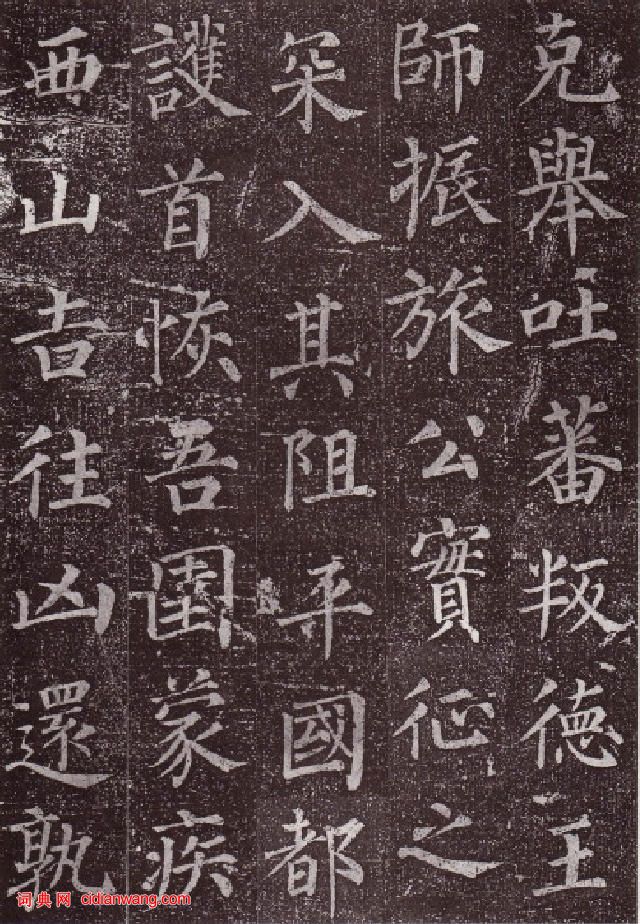 克舉吐蕃叛德王
師振旅公實征之
罙入其阻平國都
護首恢吾圉蒙疾
西山吉往凶還孰
词典网 cidianwang.com